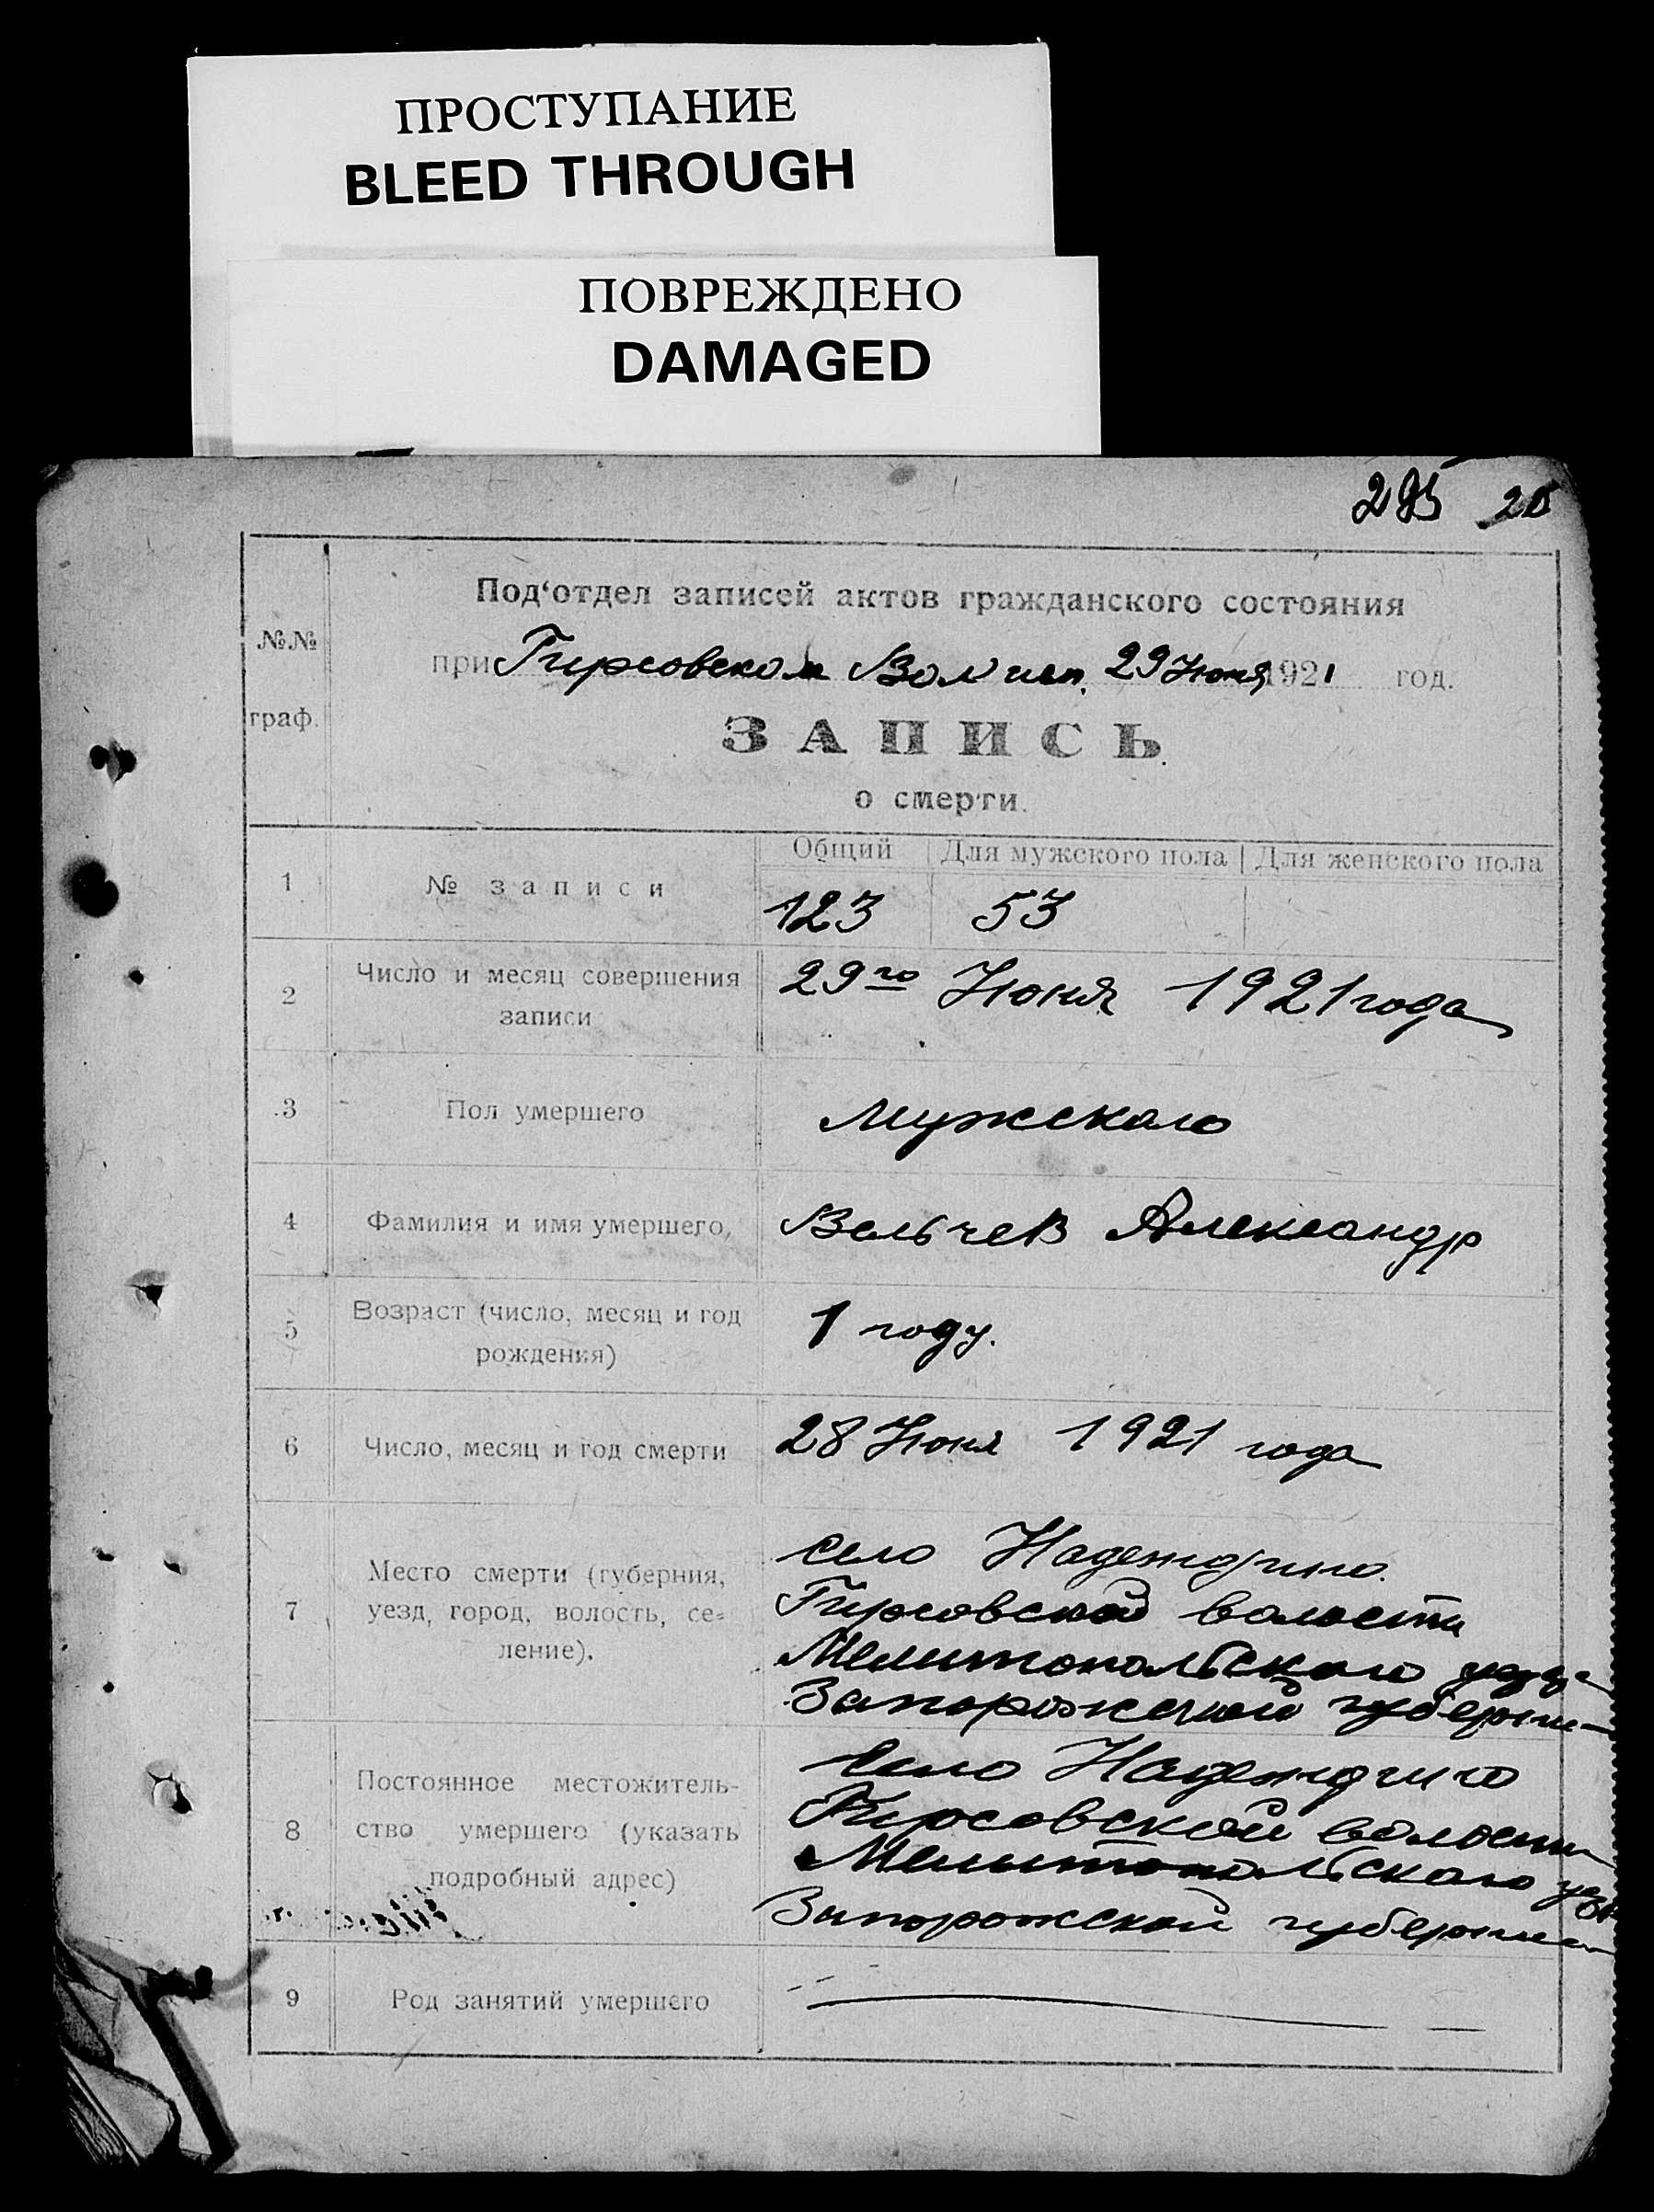 ПРОСТУПАНИЕ
BLEED THROUGH
ПОВРЕЖДЕНО
DAMAGED
295 20
№№ граф.
Под‘отдел записей актов гражданского состояния
при Гирсовском Волисп. 29 Июня 1921 год.
ЗАПИСЬ
о смерти.
Общий Для мужского пола Для женского пола
1 № записи 123 53
2 Число и месяц совершения 29го Июня 1921 года
записи
3 Пол умершего Мужского
4 Фамилия и имя умершего, Вельчев Александр
5 Возраст (число, месяц и год 1 году.
рождения)
6 Число, месяц и год смерти 28 Июня 1921 года
село Надеждино.
7 Место смерти (губерния, Гирсовской волости
уезд, город, волость, се= Мелитопольского уезда
ление). Запорожской губернии
село Надеждино
8 Постоянное местожитель- Гирсовской волости
ство умершего (указать Мелитопольского уезда
подробный адрес) Запорожской губернии
9 Род занятий умершего —